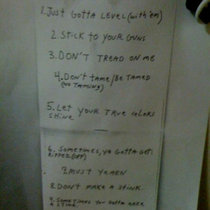 1. Just Gotta Level (with 'em)
2. Stick to your guns
3. Don't tread on me
4. Don't tame/Be tamed
(no taming)
5. Let your true colors
shine
6. Sometimes, ya gotta get
ripped (off)
7. Must yearn
8. Don't make a stink
9. Sometimes you gotta make
a stink